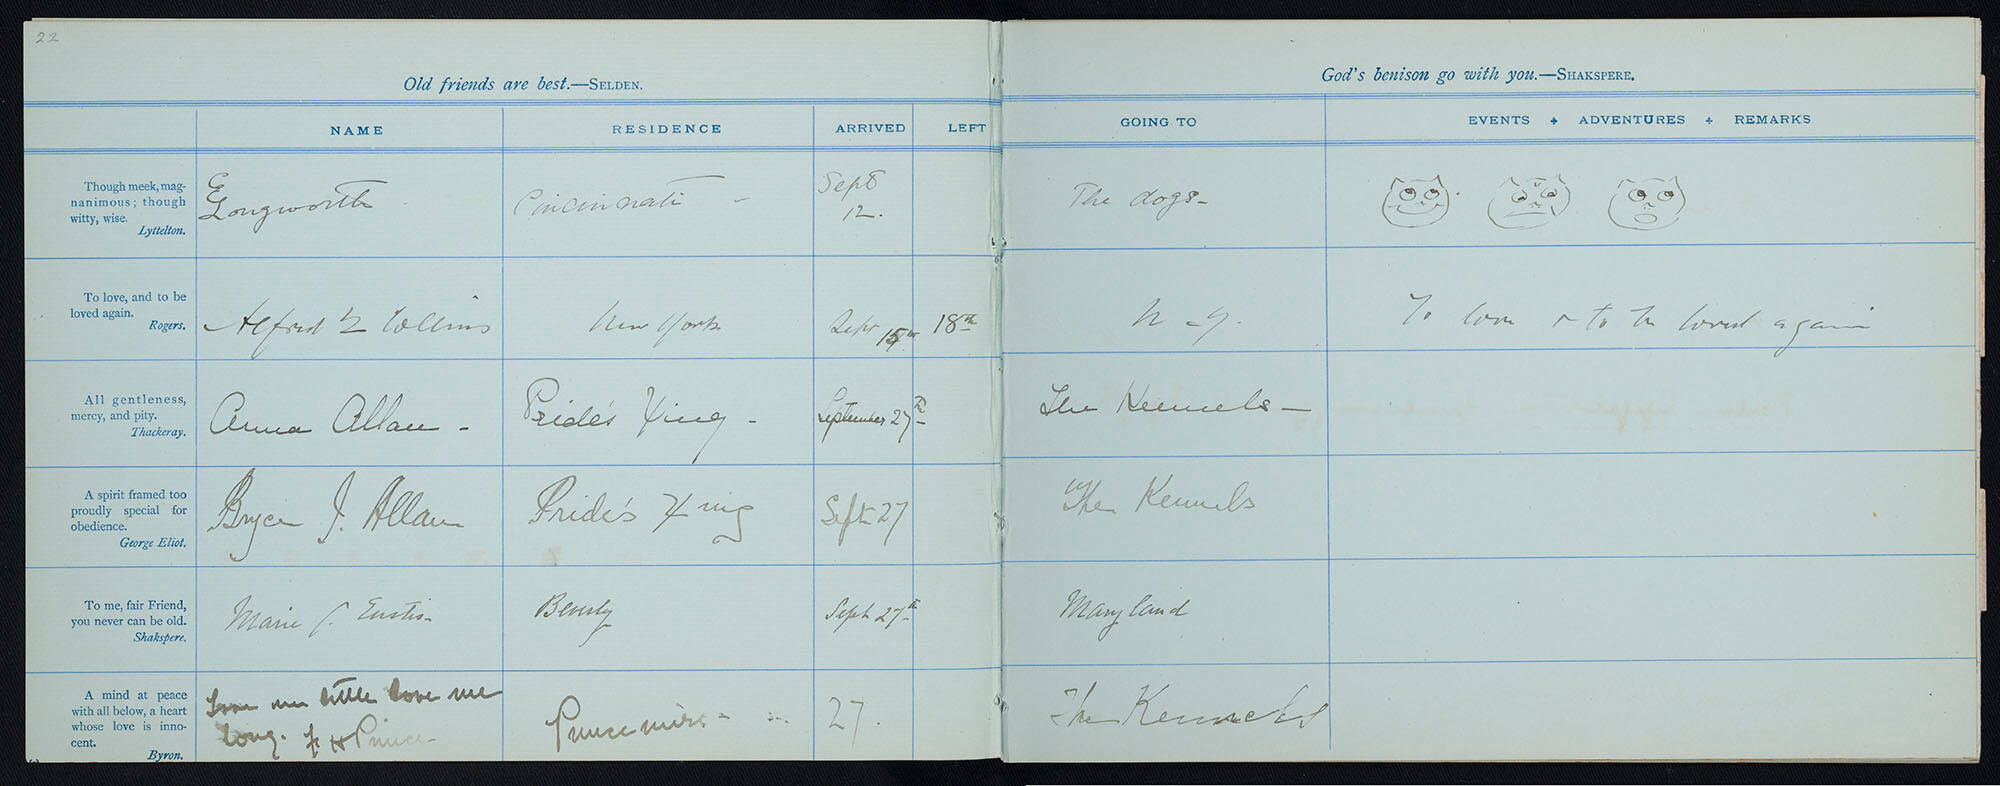 22
Old friends are best.—SELDEN.
God's benison go with you.—SHAKSPERE.
NAME RESIDENCE ARRIVED LEFT GOING TO EVENTS + ADVENTURES + REMARKS
Though meek, mag-
nanimous; though
witty, wise.
Lyttelton.
Longworth Cincinnati - Sept
12.
The dogs-
To love, and to be
loved again.
Rogers.
Alfred Collins New York Sept 15th 18th N-Y. To love & to be loved again
All gentleness,
mercy, and pity.
Thackeray.
Anna Allan - Pride's Xing - September 27th The Kennels -
A spirit framed too
proudly special for
obedience.
George Eliot.
Bryce J. Allan Pride's Xing Sept 27 The Kennels
To me, fair Friend,
you never can be old.
Shakspere.
Marie C. Eustis- Beverly Sept 27th Maryland
A mind at peace
with all below, a heart
whose love is inno-
cent.
Byron.
Love me little love me
long. Prince- Princemere - 27. The Kennels